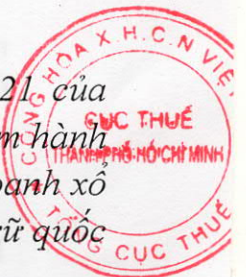 21 của
hành
anh xổ
trữ quốc
CỘNG HÒA X.H.C.N VIỆT
CỤC THUẾ
THÀNH PHỐ HỒ CHÍ MINH
TỔNG CỤC THUẾ